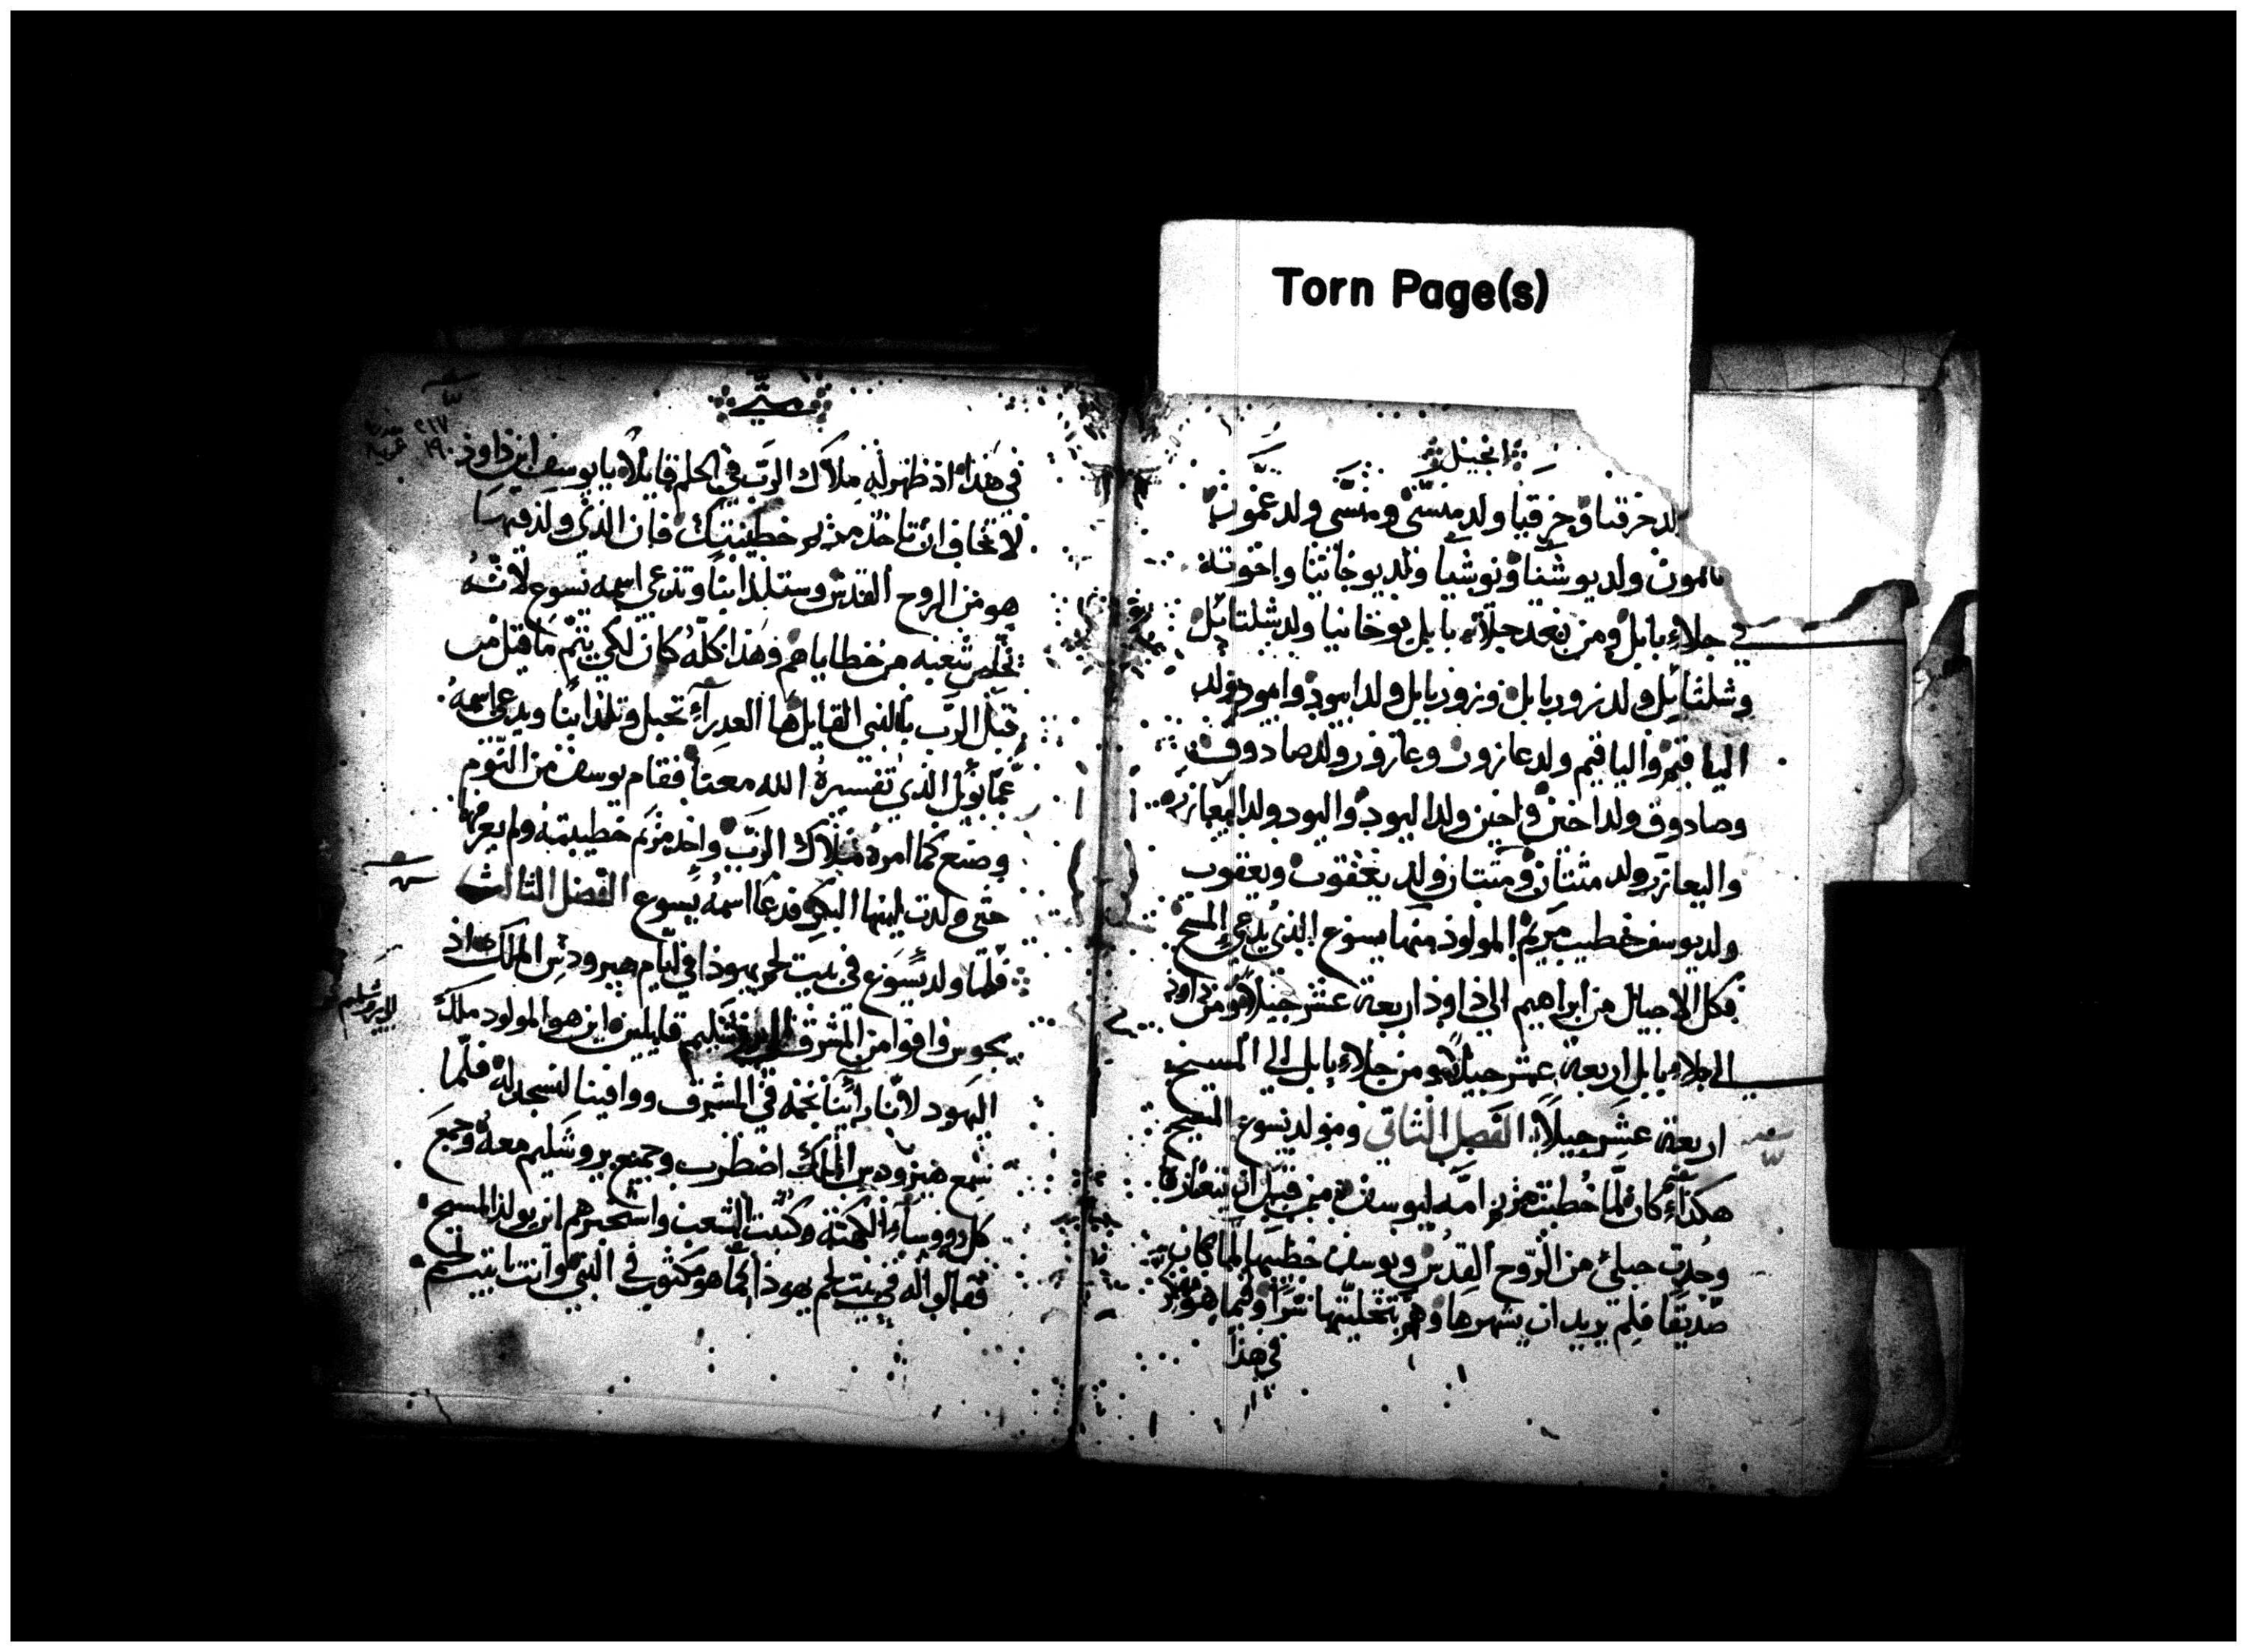 Torn Page(s)
انجيل
ولد حزقيا وحزقيا ولد منسّى ومنسّى ولد عمّون
وعمون ولد يوشيا ويوشيا ولد يوخانيا واخوته
في جلاء بابل ومن بعد جلاء بابل يوخانيا ولد شلتائيل
وشلتائيل ولد زوربابل وزوربابل ولد ابيود وابيود ولد
الياقيم والياقيم ولد عازور وعازور ولد صادوق
وصادوق ولد اخين واخين ولد اليود واليود ولد اليعازر
واليعازر ولد متتان ومتتان ولد يعقوب ويعقوب
ولد يوسف خطيب مريم المولود منها يسوع الذي يدعى المسيح
فكل الاجيال من ابراهيم الى داوذ اربعة عشر جيلاً ومن داوذ
الى جلاء بابل اربعة عشر جيلاً ومن جلاء بابل الى المسيح
اربعة عشر جيلاً الفصل الثاني ومولد يسوع المسيح
هكذا كان لمّا خُطبت مريم امّه ليوسف من قبل ان يتعارفا
وجدت حبلى من الروح القدس ويوسف خطيبها لما كان
صدّيقا فلم يريد ان يشهرها وهمّ بتخليتها سرّا وفيما هو مفكر
في هذا
متى
في هذا اذ ظهر له ملاك الرّب في الحلم قايلاً يا يوسف ابن داوذ
لا تخاف ان تاخذ مريم خطيبتك فان الذي ولد فيها
هو من الروح القدس وستلد ابنا وتدعي اسمه يسوع لانّه
يخلص شعبه من خطاياهم وهذا كلّه كان لكي يتم ما قيل من
قبل الرّب بالنبي القايل ها العدراء تحبل وتلد ابنا ويدعى اسمه
عمّانويل الذي تفسيره الله معنا فقام يوسف من النّوم
وصنع كما امره ملاك الرّب واخذ مريم خطيبته ولم يعرفها
حتى ولدت ابنها البكر ودعا اسمه يسوع الفصل الثالث
فلمّا ولد يسوع في بيت لحم يهوذا في ايّام هيرودس الملك اذ
مجوس وافوا من المشرق الى يروشليم قايلين اين هو المولود ملك
اليهود لانّنا راينا نجمه في المشرق ووافينا لنسجد له فلمّا
سمع هيرودس الملك اضطرب وجميع يروشليم معه وجمع
كل رووساء الكهنة وكتبت الشعب واستخبرهم اين يولد المسيح
فقالوا له في بيت لحم يهوذا كما هو مكتوب في النبي وانت يا بيت لحم